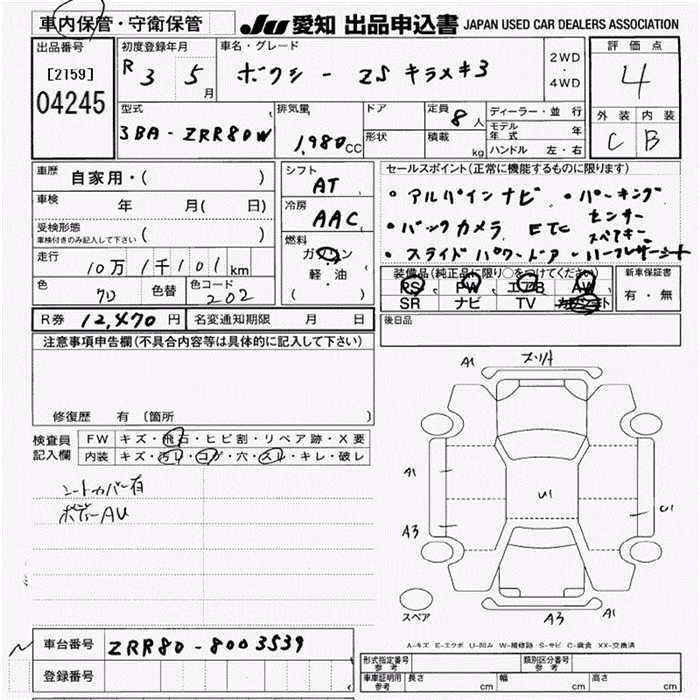 車内保管・守衛保管 JU 愛知 出品申込書 JAPAN USED CAR DEALERS ASSOCIATION
出品番号 [2159] 04245
初度登録年月 R 3 5月
車名・グレード ボクシー ZS キラメキ3
2WD・4WD
評価点 4
外装 内装
C B
型式 3BA-ZRR80W
排気量 1,980cc
ドア 形状
定員 8人 積載 kg
ディーラー・並行
モデル年式 年
ハンドル 左・右
車歴 自家用・( )
車検 年 月( 日)
受検形態 車検付きのみ記入して下さい ( )
走行 10万1千101km
色 クロ 色替 色コード 202
シフト AT
冷房 AAC
燃料 ガソリン 軽・油 ( )
セールスポイント(正常に機能するものに限ります)
・アルパインナビ ・パーキングセンサー
・バックカメラ ETC スペアキー
・スライドパワードア・ハーフレザーシート
装備品(純正品に限り○をつけてください)
PS PW エアB AW
SR ナビ TV
新車保証書 有・無
R券 12,470円 名変通知期限 月 日
後日品
注意事項申告欄(不具合内容等は具体的に記入して下さい)
修復歴 有 〔箇所 〕
検査員記入欄
FW キズ・飛石・ヒビ割・リペア跡・X要
内装 キズ・汚レ・コゲ・穴・スレ・キレ・破レ
シートカバー有
ボディーAU
A1
A1
A1
U1
U1
A3
A3
A1
スペア
A-キズ E-エクボ U-凹み W-補修跡 S-サビ C-腐食 XX-交換済
車台番号 ZRR80-8003539
登録番号
形式指定番号 参考 類別区分番号 参考
車庫証明用 参考 長さ cm 幅 cm 高さ cm